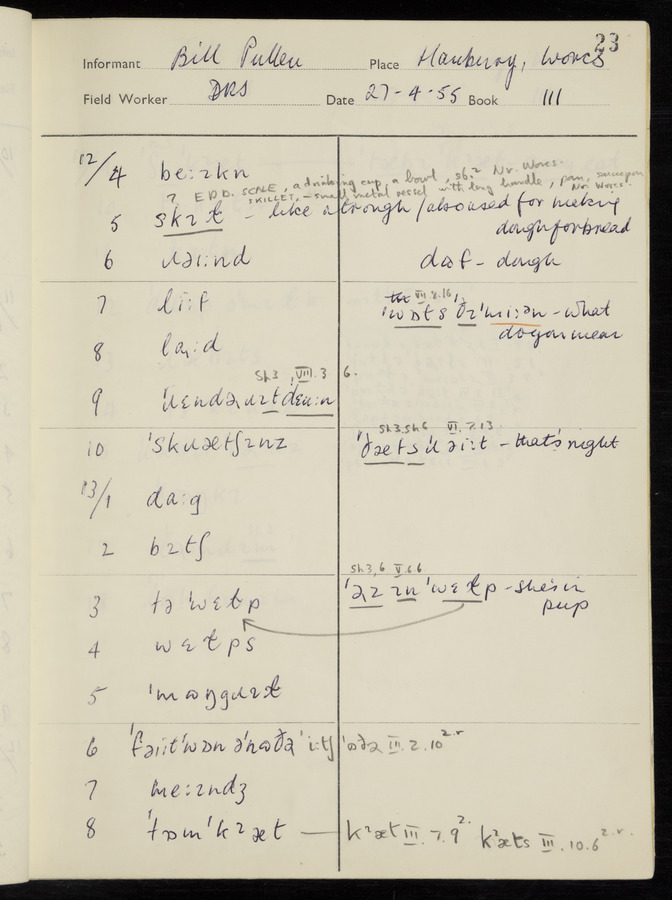 23
Informant Bill Pullen Place Hanbury, Worcs
Field Worker DRS Date 27-4-55 Book III
12/4 be:ɪkn
? E.D.D. SCALE, a drinking cup, a bowl, sb.² Nr. Worcs.
SKILLET, - small metal vessel with long handle, pan, saucepan Nr. Worcs.
5 skɪɫ - like a trough / also used for making
dough for bread
6 ɹəi:nd dɒf - dough
7 li:f VII.8.16
'wɒts ðɪ'mi:ən - what
do you mean
8 la:d
Sh3, VII.3 6.
9 'ɹɛndəɹɪtdɛu:n
Sh3, Sh6 VI.7.13
10 'skɹætʃɪnz 'ðæts ɹəi:t - that's right
13/1 da:g
2 bɪtʃ
Sh3,6 V.6.6
3 'əɪ ɪn 'wɛɫp - she's in
pup
4 wɛɫps
5 'mɒŋgɹɪɫ
6 'fəiit'wɒn ə'nɒðə'i:tʃ 'ɒðə III.2.10²·ʳ
7 me:ɪndʒ
8 'tɒm'kʔæt — kʔæt III.7.9². kʔæts III.10.6²·ʳ·